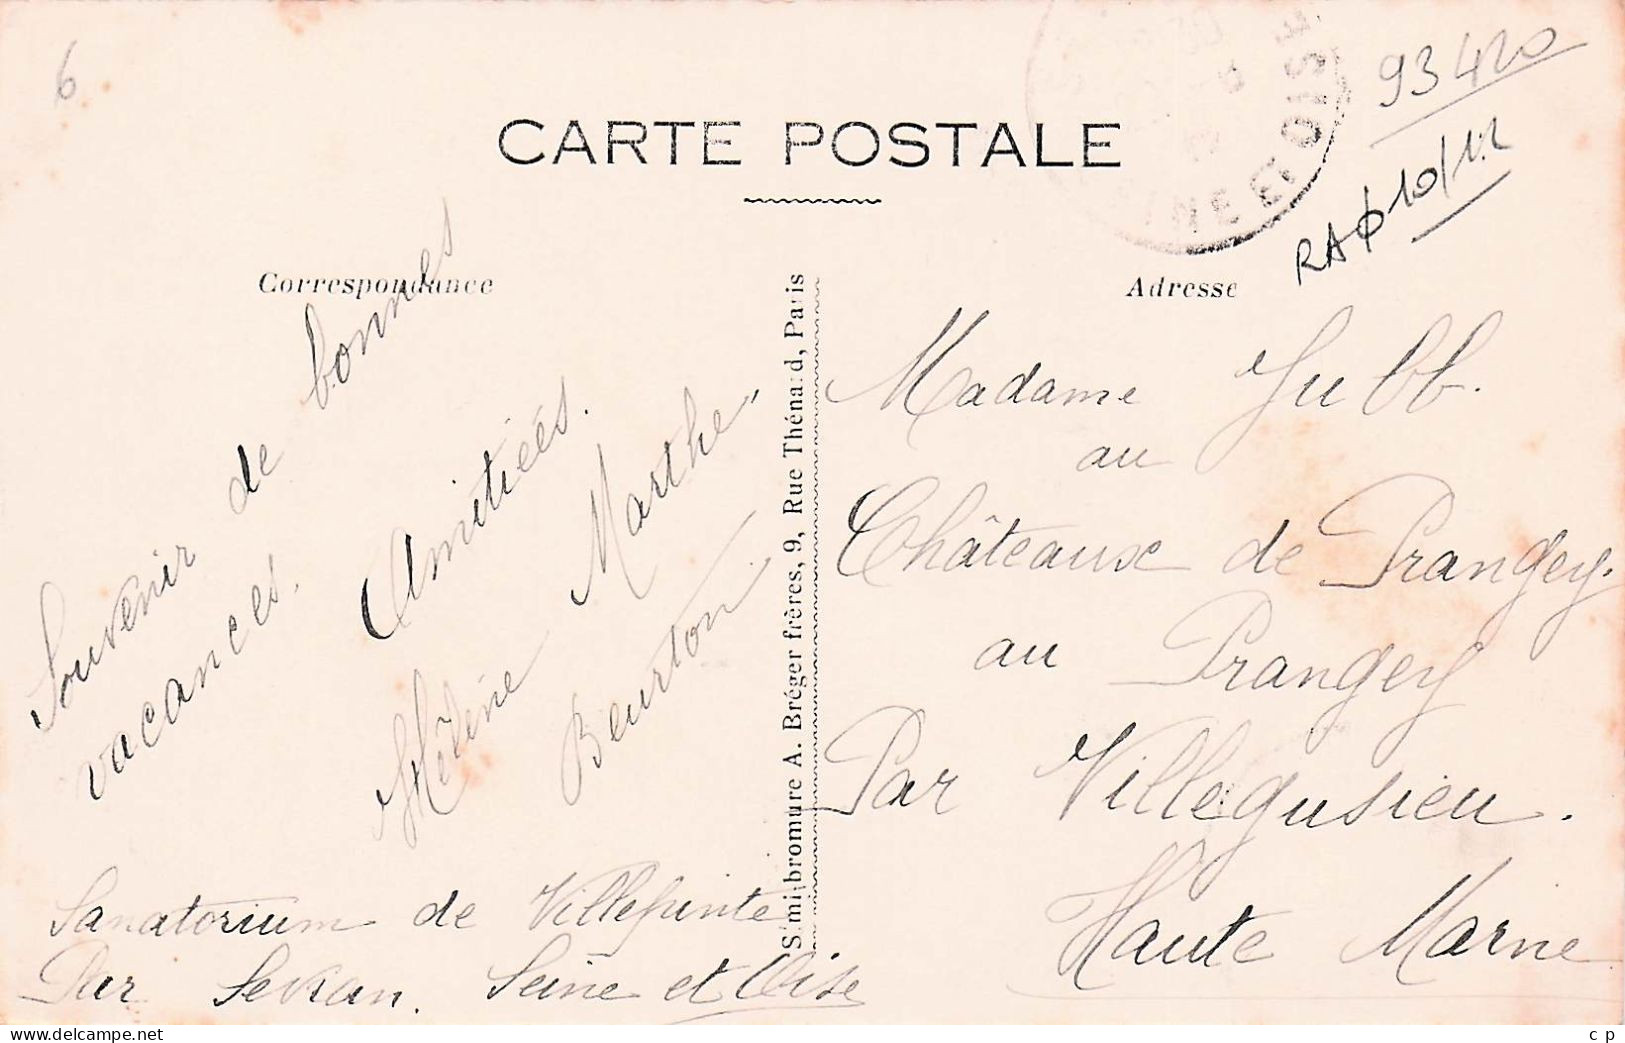 6
93420
RAφ10/12
CARTE POSTALE
Correspondance
Adresse
Souvenir de bonnes
vacances.
Amitiéés.
Hélène Marthe
Beurton
Sanatorium de Villepinte
Par Sevran. Seine et Oise
S mibromure A. Bréger frères, 9, Rue Thénard, Paris
Madame Jubb.
au
Châteaux de Prangey.
au Prangey
Par Villegusieu.
Haute Marne
SEINE ET OISE
cp